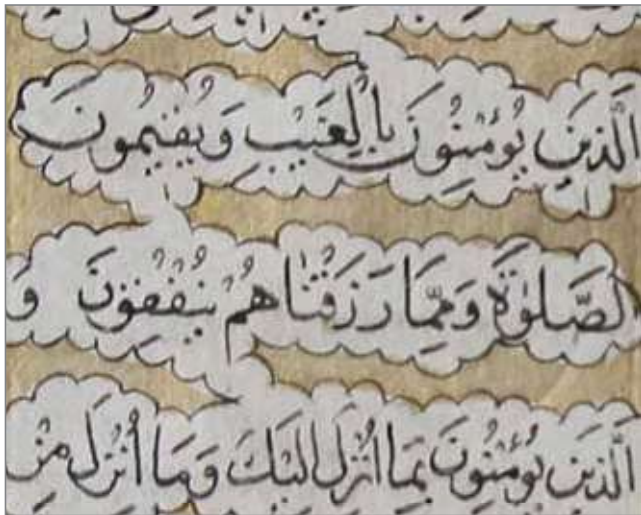 الَّذِينَ يُؤْمِنُونَ بِالْغَيْبِ وَيُقِيمُونَ
الصَّلَوٰةَ وَمِمَّا رَزَقْنَاهُمْ يُنْفِقُونَ وَ
الَّذِينَ يُؤْمِنُونَ بِمَا أُنْزِلَ إِلَيْكَ وَمَا أُنْزِلَ مِنْ